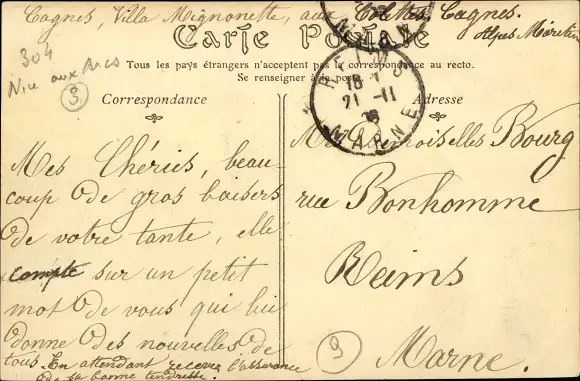 Cagnes, Villa Mignonette, aux Colettes, Cagnes.
Alpes Maritim
Carte Postale
Tous les pays étrangers n'acceptent pas la correspondance au recto.
Se renseigner à la poste
304
Nice aux Arcs
3
Correspondance
Adresse
REIMS
18
21 -11
MARNE
Mes Chéries, beau
coup de gros baisers
de votre tante, elle
compte sur un petit
mot de vous qui lui
donne des nouvelles de
tous. En attendant recevez l'assurance
de sa bonne tendresse.
Mesdemoiselles Bourg
rue Bonhomme
Reims
Marne.
9